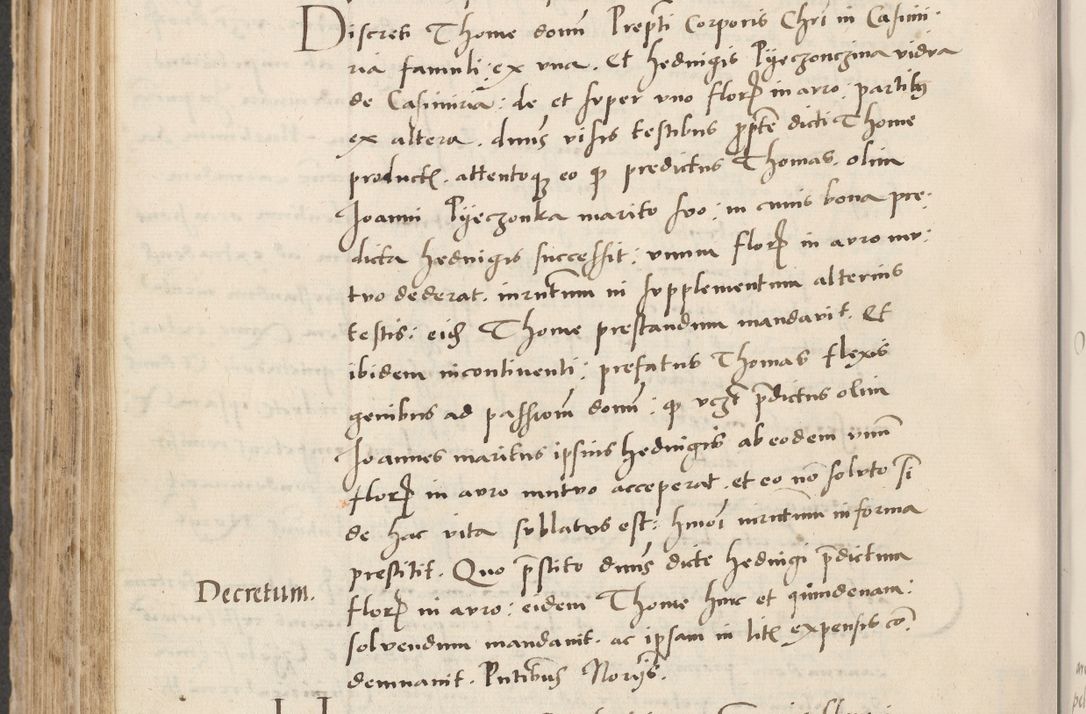 Discreti Thome domi Prepti Corporis Chri in Casimi:
ria famuli: ex vna. Et hedvigis Pyeczonczina vidva
de Casimiria: de et svper vno flor in avro. partibus
ex altera. dnus visis testibus pro pte dicti Thome
product. attentoque eo quod predictus Thomas. olim
Joanni Pyeczonka marito svo: in cuius bona pre:
dicta hedvigis successit: vnum flor in avro mv:
tvo dederat. iurutum in svpplementum alterius
testis: eid Thome prestandum mandavit. Et
ibidem incontinenti: prefatus Thomas flexis
genibus ad passiom domi: quod vczt pdictus olim
Joannes maritus ipsius hedvigis ab eodem vnu
flor in avro mutvo acceperat. et eo no solvto si
de hac vita svblatvs est: hmoi iurutum in forma
prestitit. Quo pstito dnus dicte hedvigi pdictum
Decretum.
flor in avro: eidem Thome hinc et quindenam:
solvendum mandavit. ac ipsam in lit expensis co:
demnavit. Pntibus Norijs.